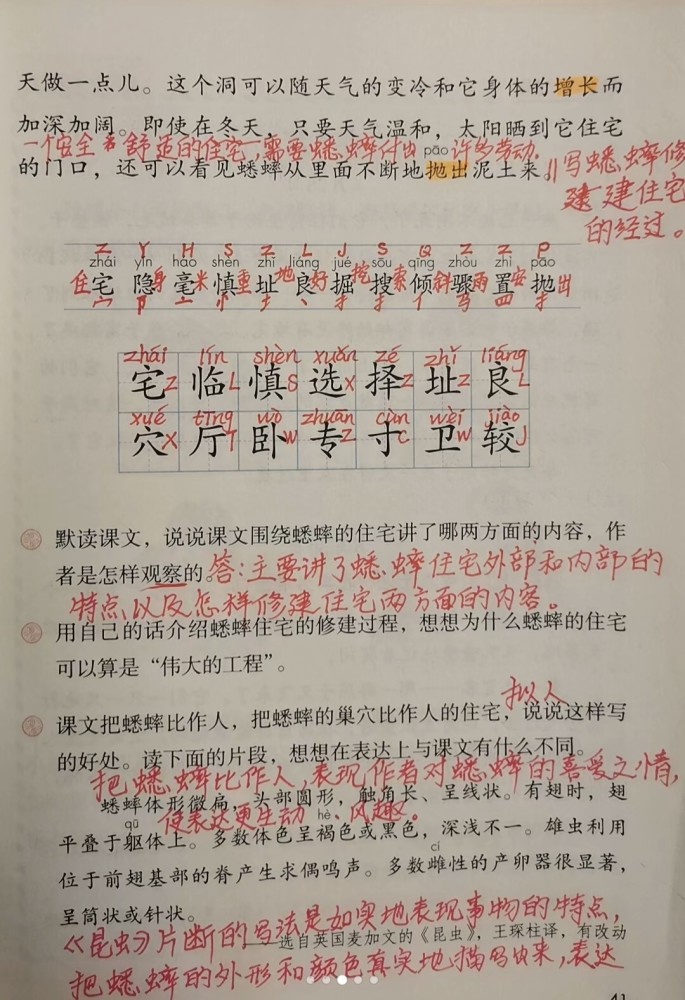 天做一点儿。这个洞可以随天气的变冷和它身体的增长而
加深加阔。即使在冬天，只要天气温和，太阳晒到它住宅
一个安全 舒适的住宅，需要蟋蟀付出 许多劳动。
pāo
的门口，还可以看见蟋蟀从里面不断地抛出泥土来。
写蟋蟀修
建 建住宅
的经过。
Z Y H S Z L J S Q Z Z P
zhái yǐn háo shèn zhǐ liáng jué sōu qīng zhòu zhì pāo
住宅 隐身 毫米 慎重 址地 良好 掘挖 搜索 倾斜 骤雨 置安 抛出
宀 阝 亠 忄 土 丶 扌 扌 亻 马 罒 扌
zhái lín shèn xuǎn zé zhǐ liáng
宅Z 临L 慎S 选X 择Z 址Z 良L
xué tīng wò zhuān cùn wèi jiào
穴X 厅T 卧W 专Z 寸C 卫W 较J
默读课文，说说课文围绕蟋蟀的住宅讲了哪两方面的内容，作
者是怎样观察的。答：主要讲了蟋蟀住宅外部和内部的
特点以及怎样修建住宅两方面的内容。
用自己的话介绍蟋蟀住宅的修建过程，想想为什么蟋蟀的住宅
可以算是“伟大的工程”。
拟人
课文把蟋蟀比作人，把蟋蟀的巢穴比作人的住宅，说说这样写
的好处。读下面的片段，想想在表达上与课文有什么不同。
把蟋蟀比作人，表现作者对蟋蟀的喜爱之情，
蟋蟀体形微扁，头部圆形，触角长、呈线状。有翅时，翅
使表达更生动、风趣。
qū hè
平叠于躯体上。多数体色呈褐色或黑色，深浅不一。雄虫利用
cí
位于前翅基部的脊产生求偶鸣声。多数雌性的产卵器很显著，
呈筒状或针状。
《昆虫》片断的写法是如实地表现事物的特点，
选自英国麦加文的《昆虫》，王琛柱译，有改动
把蟋蟀的外形和颜色真实地描写出来，表达
41